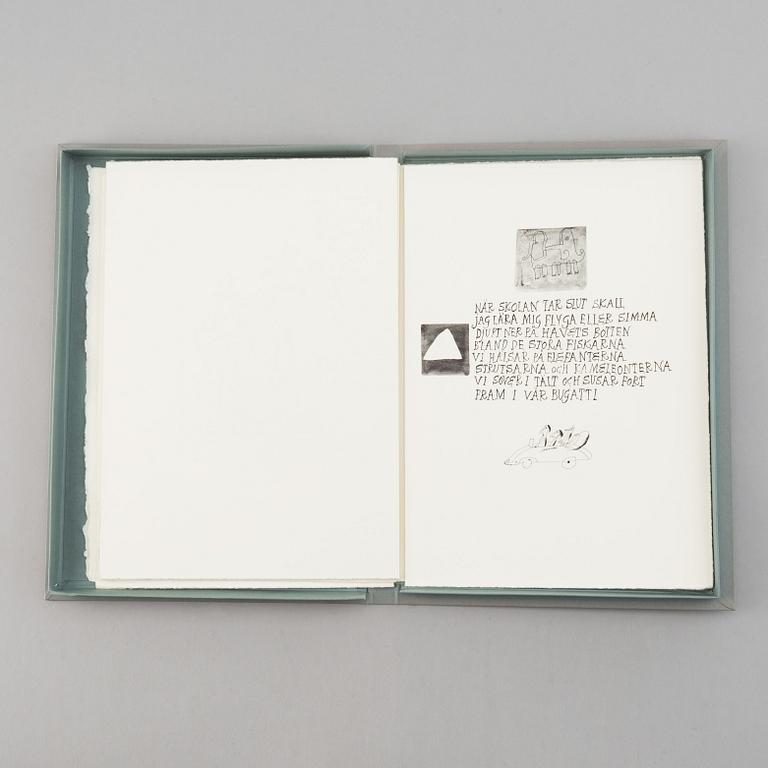 NÄR SKOLAN TAR SLUT SKALL
JAG LÄRA MIG FLYGA ELLER SIMMA
DJUPT NER PÅ HAVETS BOTTEN
BLAND DE STORA FISKARNA
VI HÄLSAR PÅ ELEFANTERNA
STRUTSARNA OCH KAMELEONTERNA
VI SOVER I TÄLT OCH SUSAR FORT
FRAM I VÅR BUGATTI